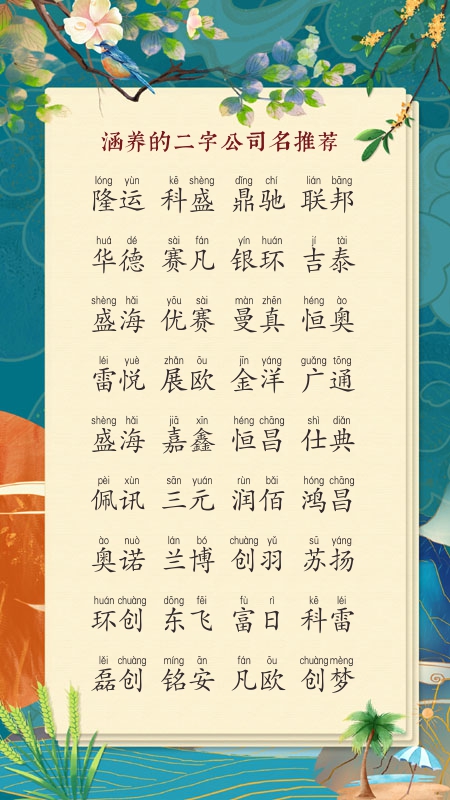 涵养的二字公司名推荐
lóng yùn kē shèng dǐng chí lián bāng
隆运 科盛 鼎驰 联邦
huá dé sài fán yín huán jí tài
华德 赛凡 银环 吉泰
shèng hǎi yōu sài màn zhēn héng ào
盛海 优赛 曼真 恒奥
léi yuè zhǎn ōu jīn yáng guǎng tōng
雷悦 展欧 金洋 广通
shèng hǎi jiā xīn héng chāng shì diǎn
盛海 嘉鑫 恒昌 仕典
pèi xùn sān yuán rùn bǎi hóng chāng
佩讯 三元 润佰 鸿昌
ào nuò lán bó chuàng yǔ sū yáng
奥诺 兰博 创羽 苏扬
huán chuàng dōng fēi fù rì kē léi
环创 东飞 富日 科雷
lěi chuàng míng ān fán ōu chuàng mèng
磊创 铭安 凡欧 创梦